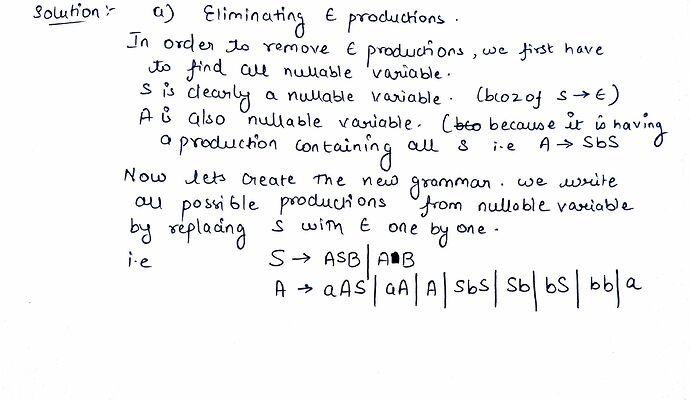 Solution:- a) Eliminating ϵ productions.
In order to remove ϵ productions, we first have
to find all nullable variable.
S is clearly a nullable variable. (bcoz of S → ϵ)
A is also nullable variable. (bco because it is having
a production containing all S i.e A → SbS
Now lets create the new grammar. we write
all possible productions from nullable variable
by replacing S with ϵ one by one.
i.e S → ASB | A B
A → aAS | aA | A | SbS | Sb | bS | bb | a